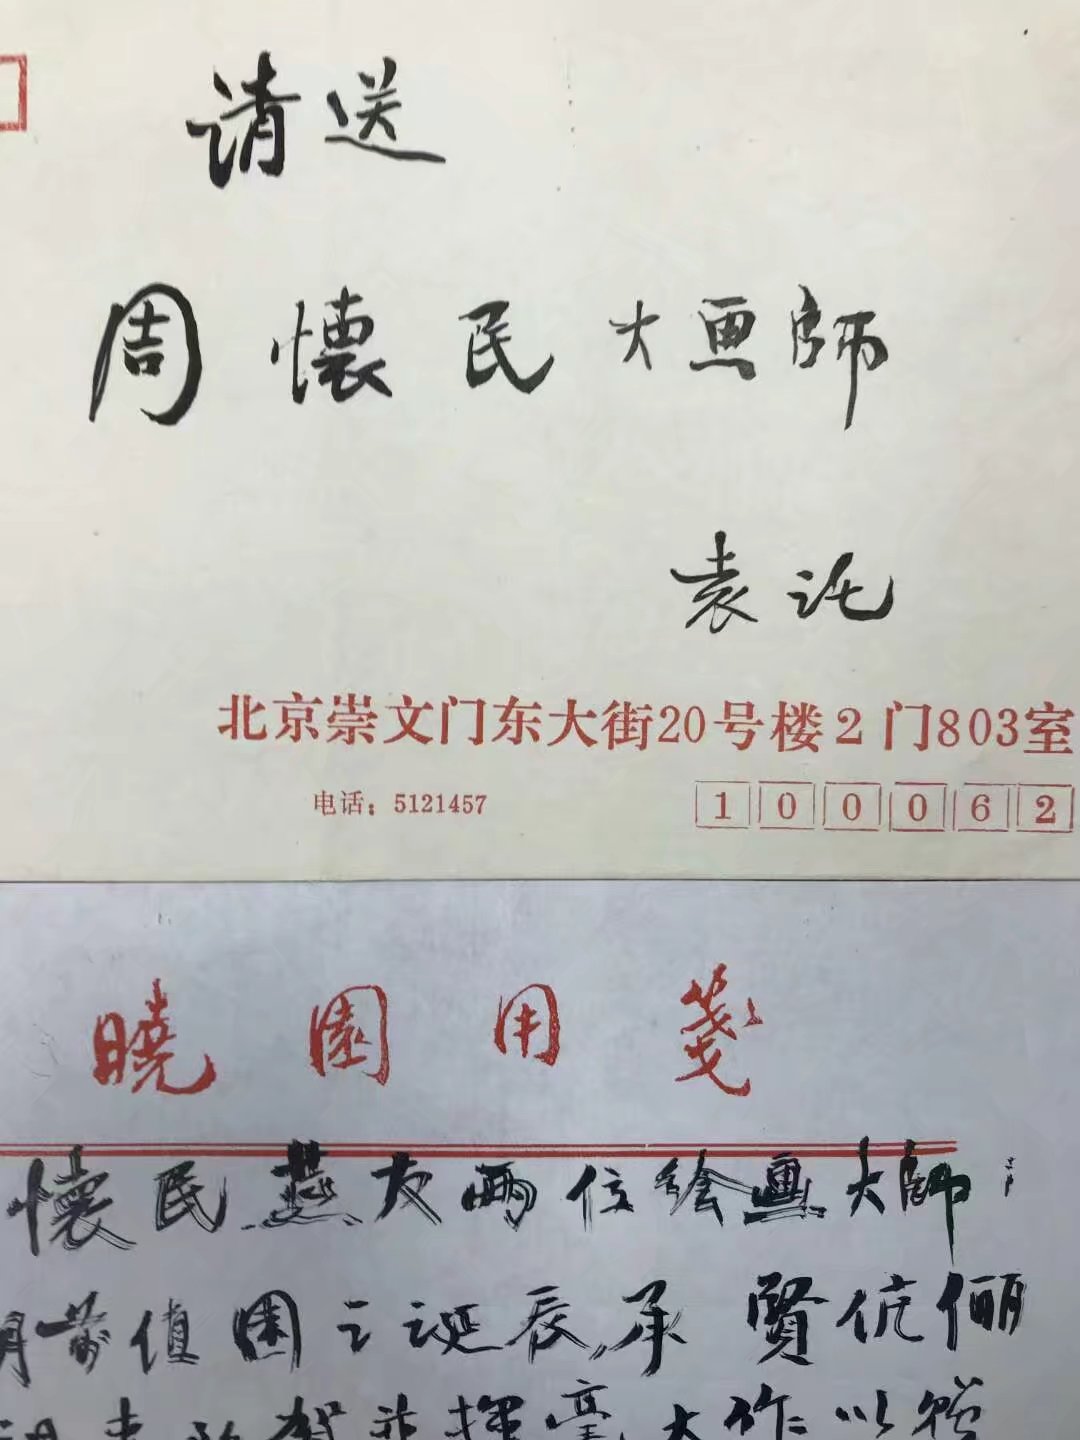 请送
周懷民大画師
袁託
北京崇文门东大街20号楼2门803室
电话：5121457
100062
曉園用箋
懷民燕友两位绘画大師：
前值園之诞辰，承賢伉俪
賀并揮毫大作以贈